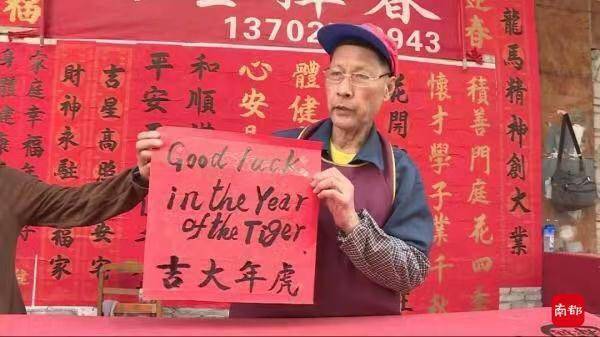 挥春
福
迎春
家庭幸福年
財神永駐福家
吉星高照安宅
平安
和順
心安
體健
花開
懷才學子業千
積善門庭花四季
龍馬精神創大業
Good luck
in the Year
of the Tiger
吉大年虎
南都